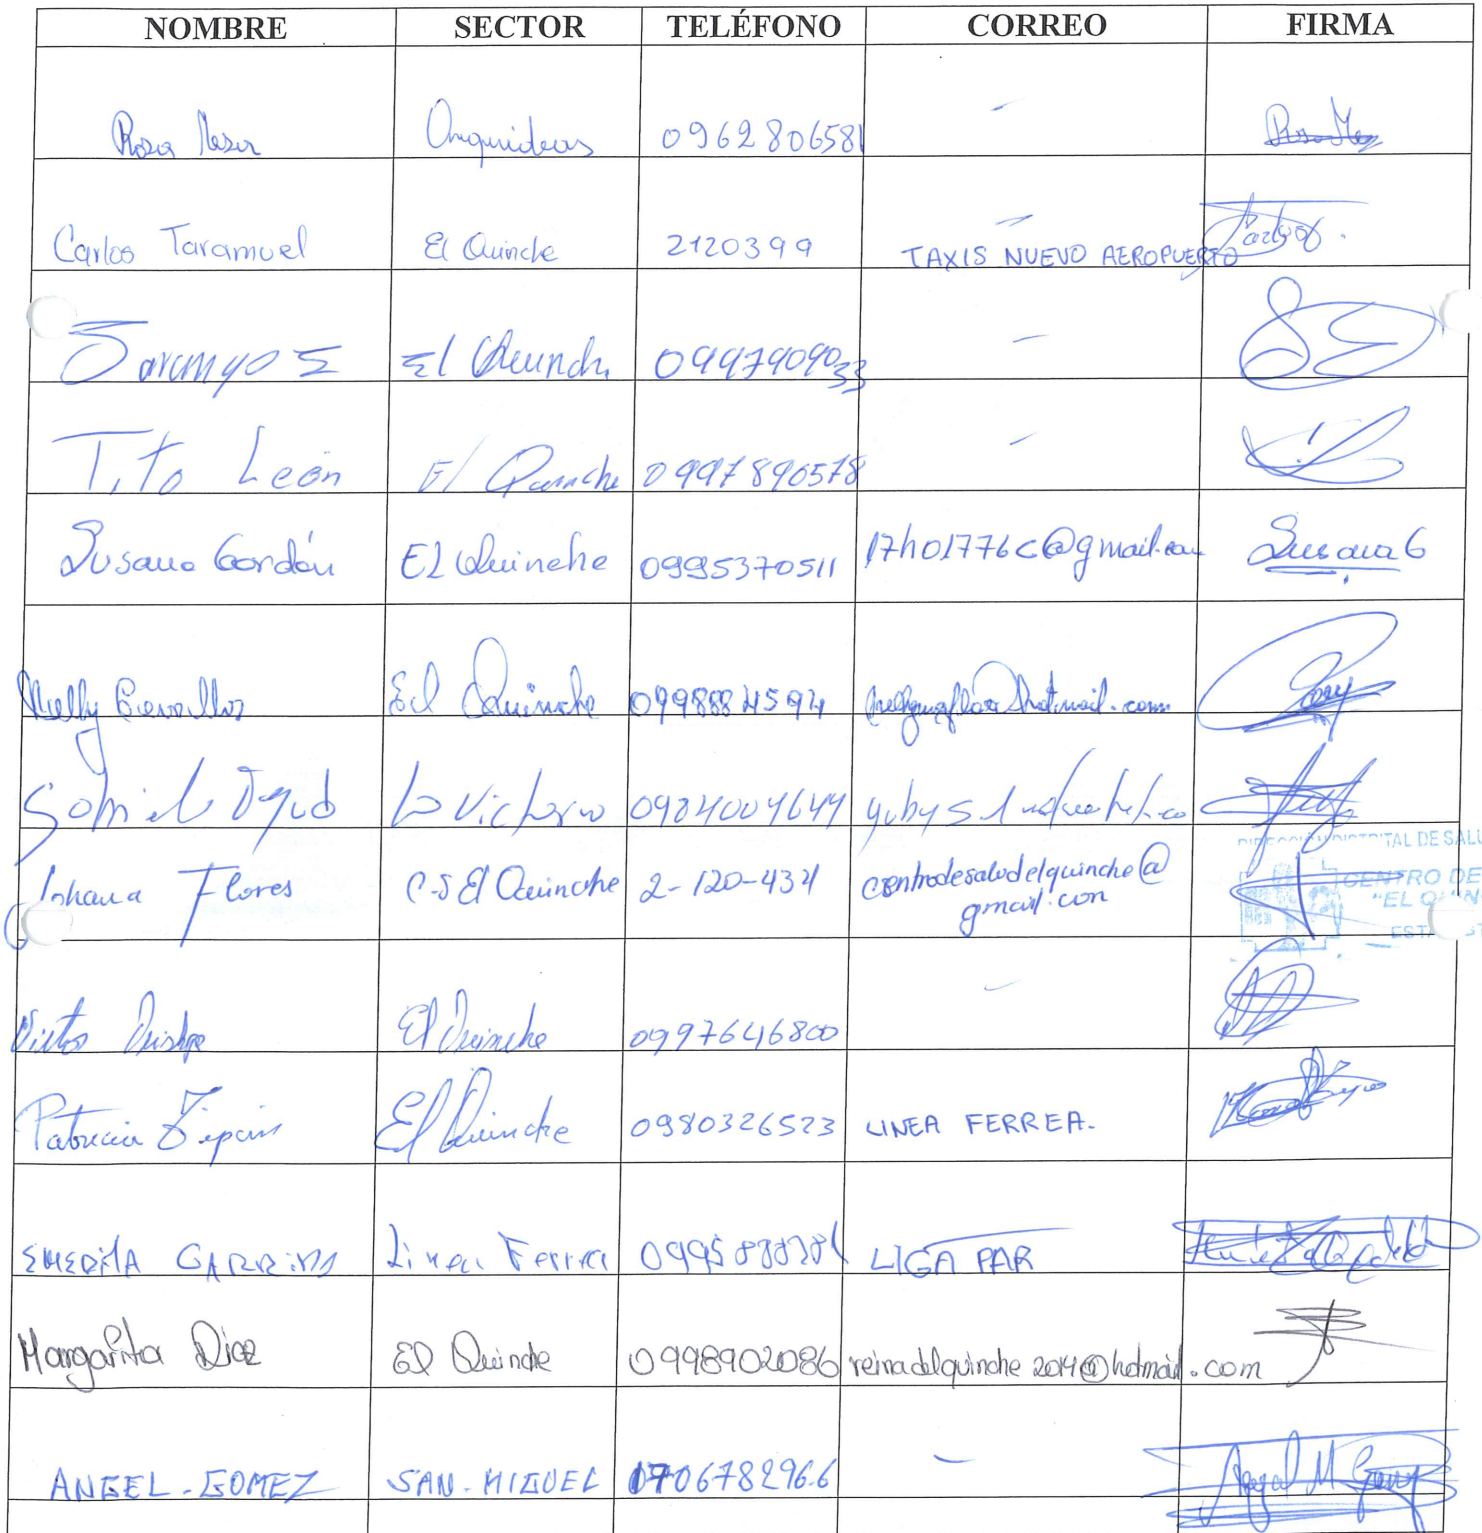 NOMBRE SECTOR TELÉFONO CORREO FIRMA
Rosa Meza Orquideas 0962806581 -
Carlos Taramuel El Quinche 2120399 - TAXIS NUEVO AEROPUERTO
El Quinche 0997909033 -
Tito León El Quinche 0997890578 -
Susana Gordón El Quinche 0995370511 17h01776c@gmail.com Susana G
Nelly El Quinche 0998884594
La Victoria 0984004644
Johana Flores C-S El Quinche 2-120-434 centrodesaludelquinche@
gmail.com
TAL DE SALU
CENTRO DE
"EL QUIN
Victor Quishpe El Quinche 0997646800 -
Patricia El Quinche 0980326523 LINEA FERREA.
Linea Ferrea LIGA PAR
Margarita Diaz El Quinche 0998902086 reinadelquinche2014@hotmail.com
ANGEL - GOMEZ SAN - MIGUEL 170678296-6 - Angel M Gomez